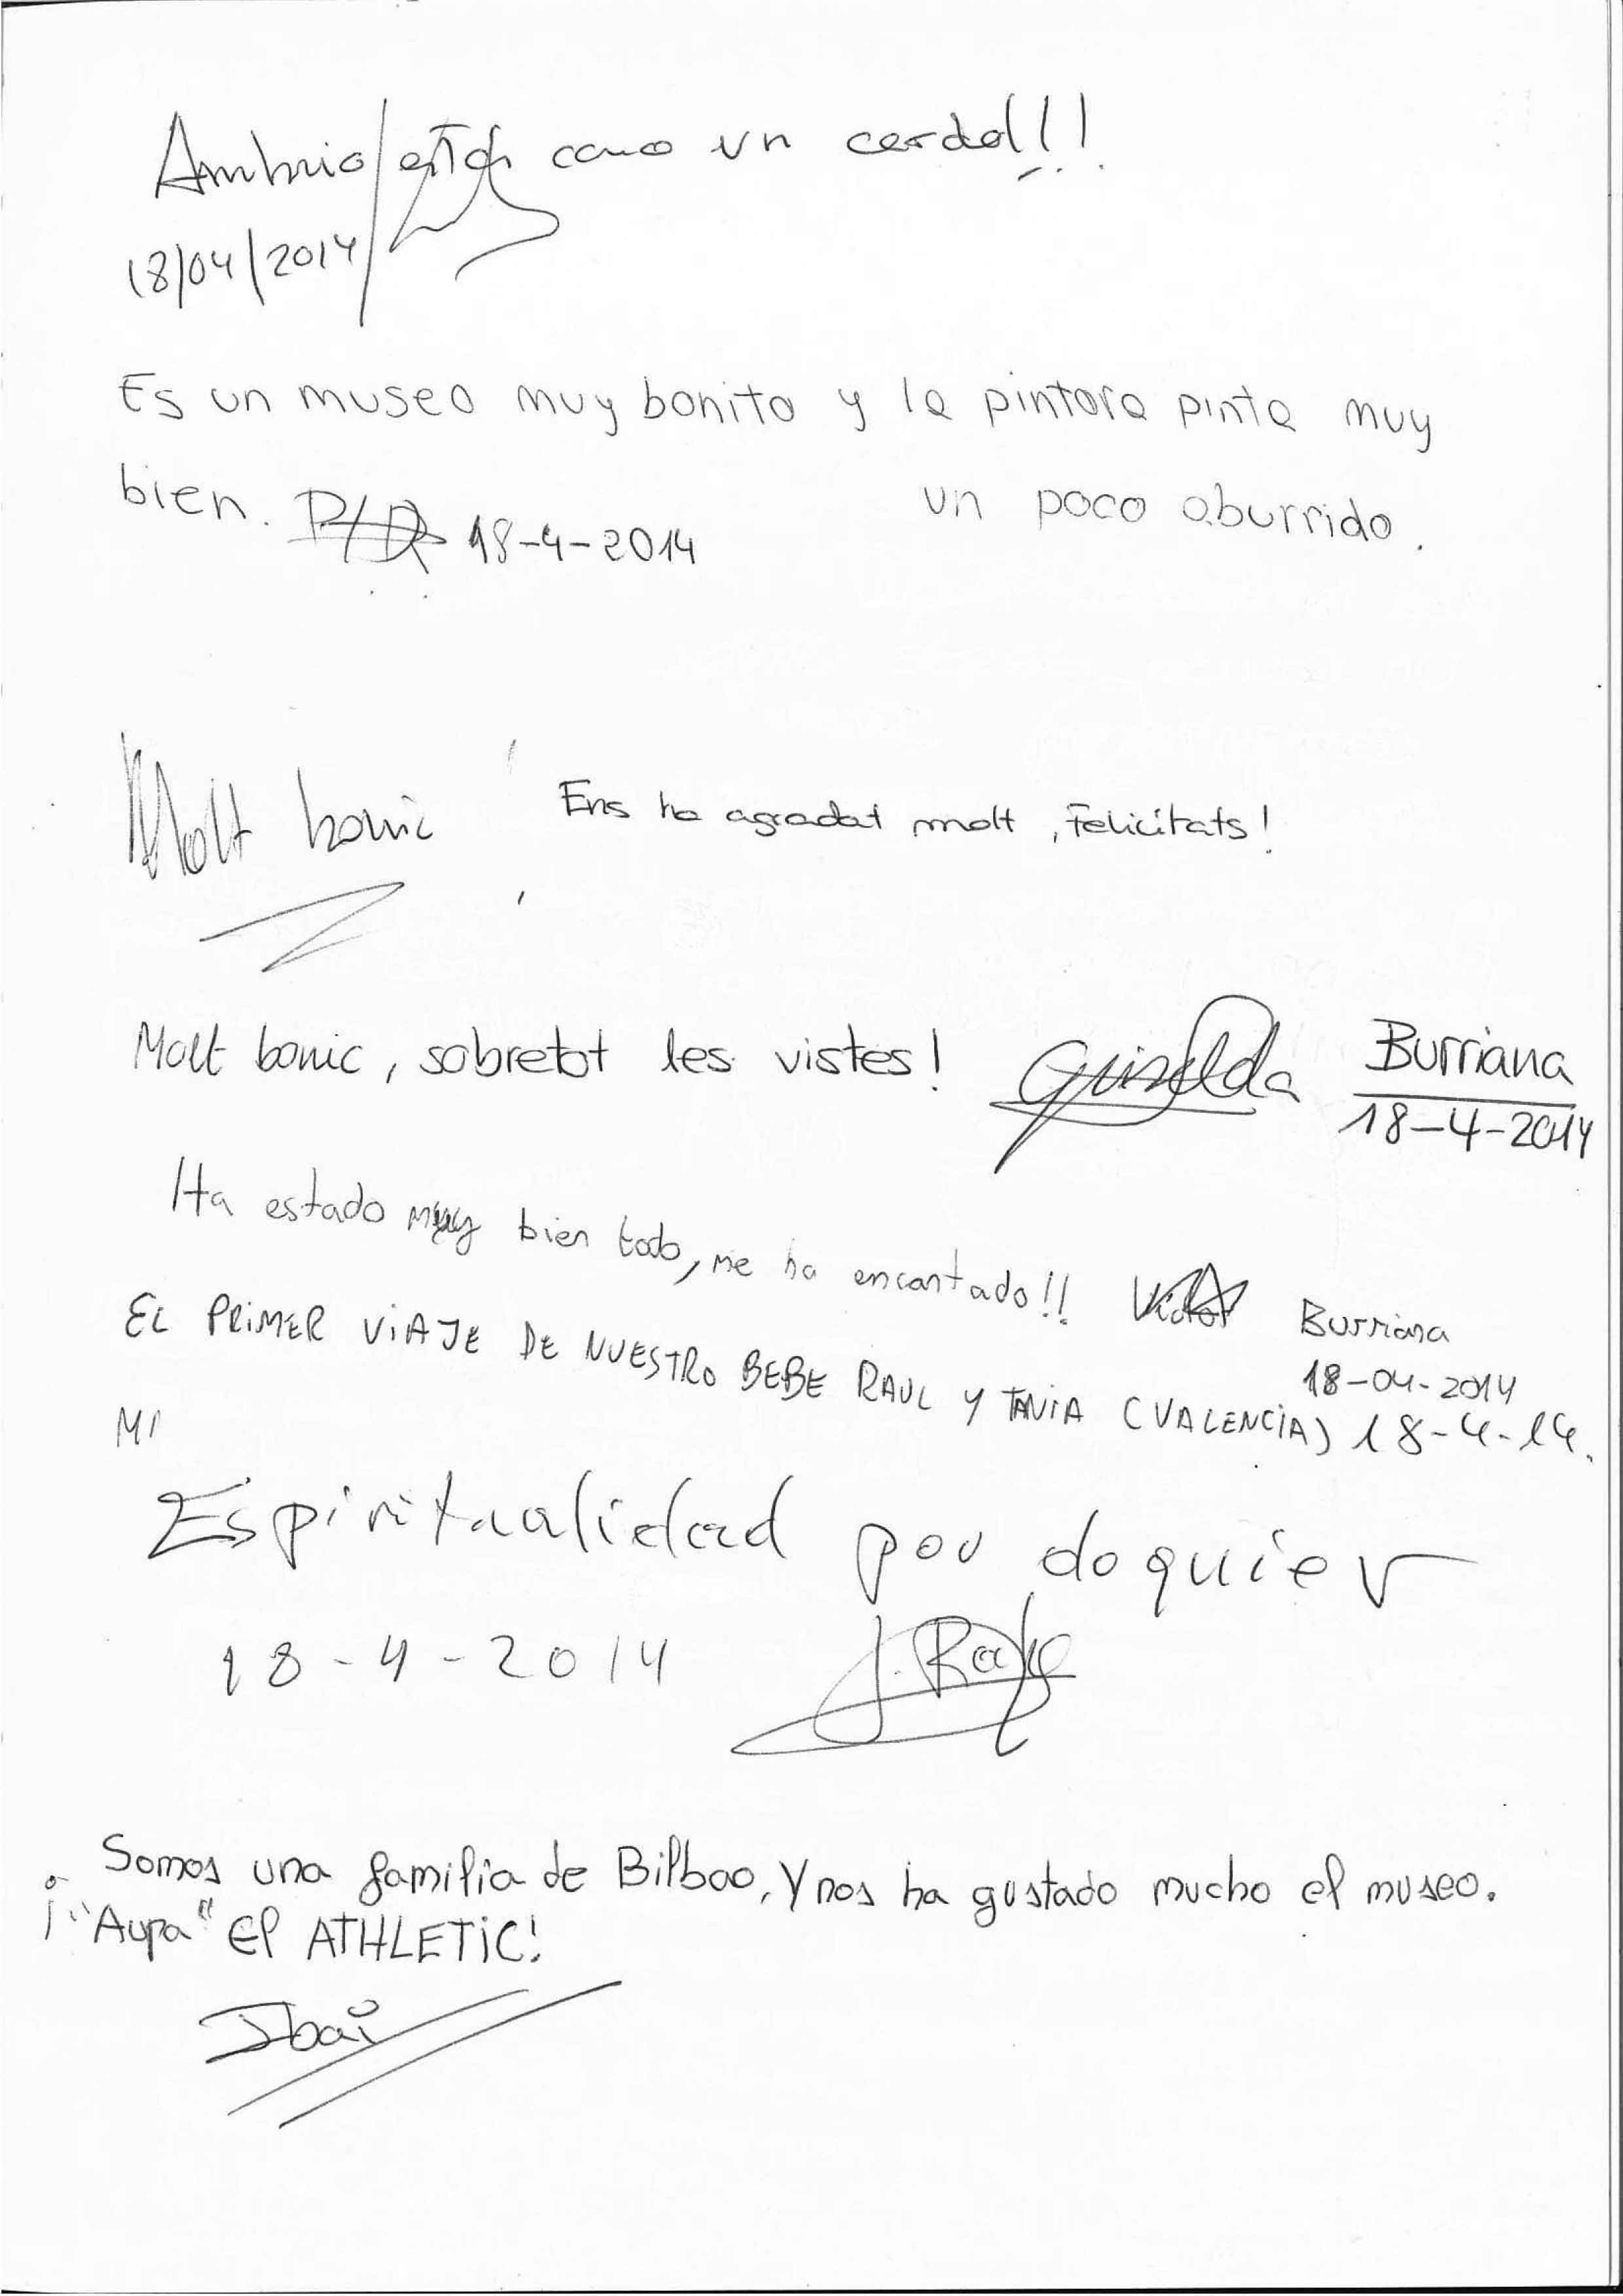 Ambrio estás como un cerdo!!!
18/04/2014
Es un museo muy bonito y la pintora pinta muy
bien. 18-4-2014
un poco aburrido.
Molt bonic
Ens ha agradat molt, Felicitats!
Molt bonic, sobretot les vistes! Griselda Burriana
18-4-2014
Ha estado muy bien todo, me ha encantado!! Victor Burriana
18-04-2014
EL PRIMER VIAJE DE NUESTRO BEBE RAUL Y TANIA (VALENCIA) 18-4-14.
MI
Espiritualidad por doquier
18-4-2014
Somos una familia de Bilbao, y nos ha gustado mucho el museo.
¡"Aupa" El ATHLETIC!
Ibai